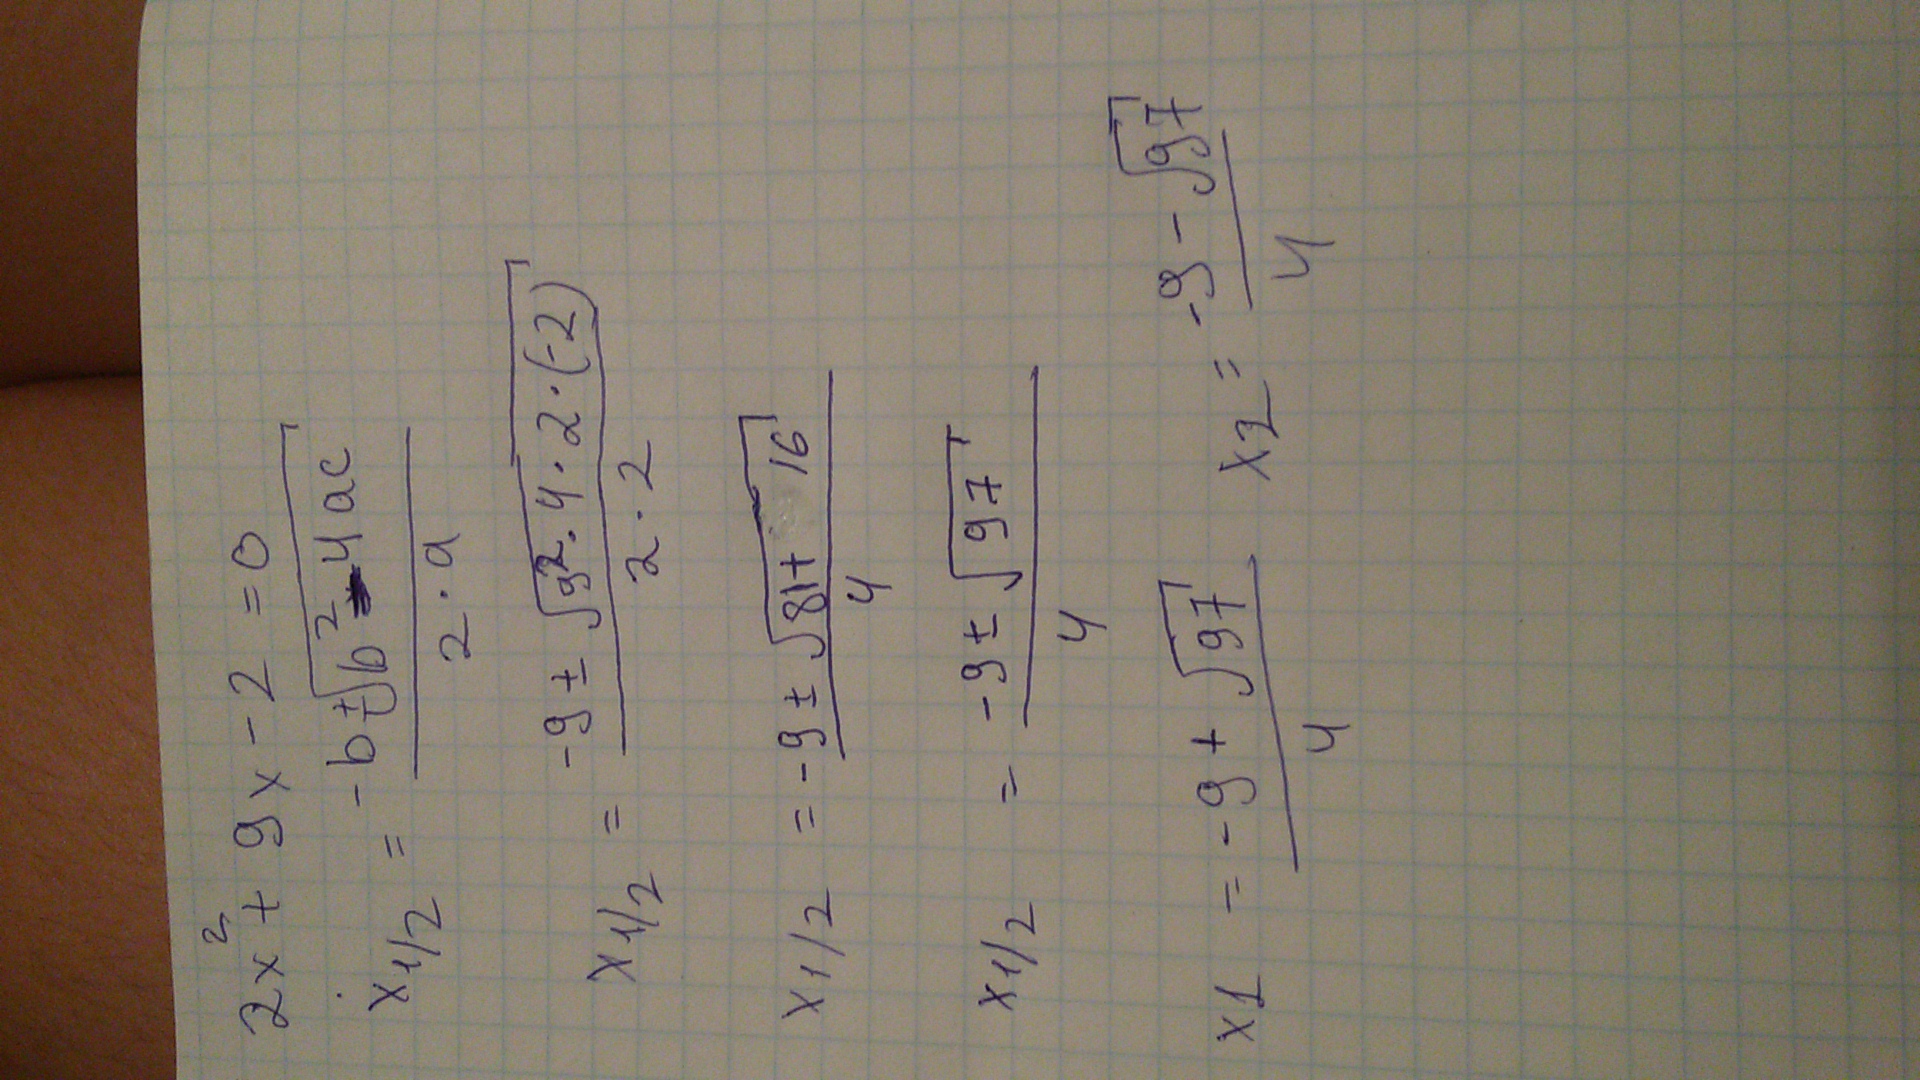 2x² + 9x - 2 = 0
x1/2 = (-b ± √(b² - 4ac)) / (2 · a)
x1/2 = (-9 ± √(9² · 4 · 2 · (-2))) / (2 · 2)
x1/2 = (-9 ± √(81 + 16)) / 4
x1/2 = (-9 ± √97) / 4
x1 = (-9 + √97) / 4 x2 = (-9 - √97) / 4